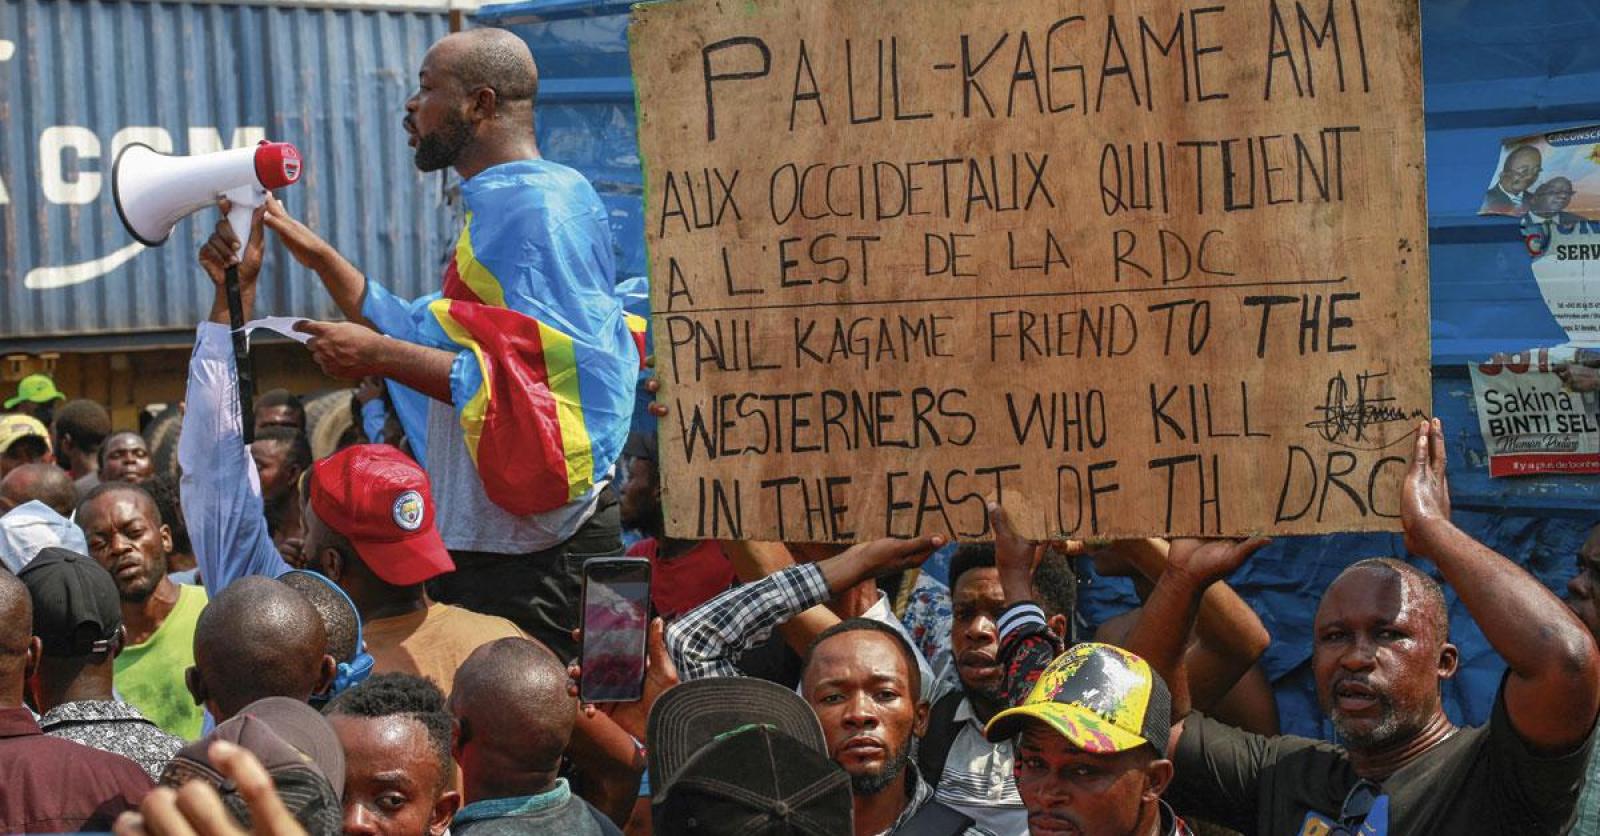 CGM
PAUL-KAGAME AMI
AUX OCCIDETAUX QUI TUENT
A L'EST DE LA RDC
PAUL KAGAME FRIEND TO THE
WESTERNERS WHO KILL
IN THE EAST OF TH DRC
SERV
Sakina
BINTI SEL